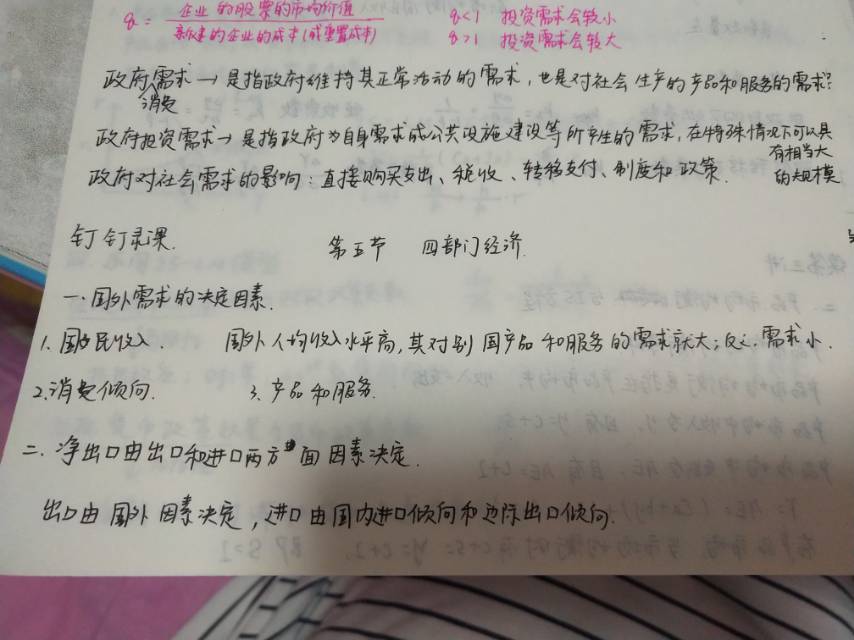 q = 企业的股票的市场价值 / 新建的企业的成本(或重置成本)
q<1 投资需求会较小
q>1 投资需求会较大
政府消费需求→是指政府维持其正常活动的需求,也是对社会生产的产品和服务的需求?
政府投资需求→是指政府为自身需求或公共设施建设等所产生的需求,在特殊情况下可以具有相当大的规模
政府对社会需求的影响:直接购买支出、税收、转移支付、制度和政策.
钉钉录课.
第五节 四部门经济.
一.国外需求的决定因素.
1.国民收入. 国外人均收入水平高,其对别国产品和服务的需求就大;反之.需求小.
2.消费倾向. 3.产品和服务.
二.净出口由出口和进口两方面因素决定.
出口由国外因素决定,进口由国内进口倾向和边际出口倾向.